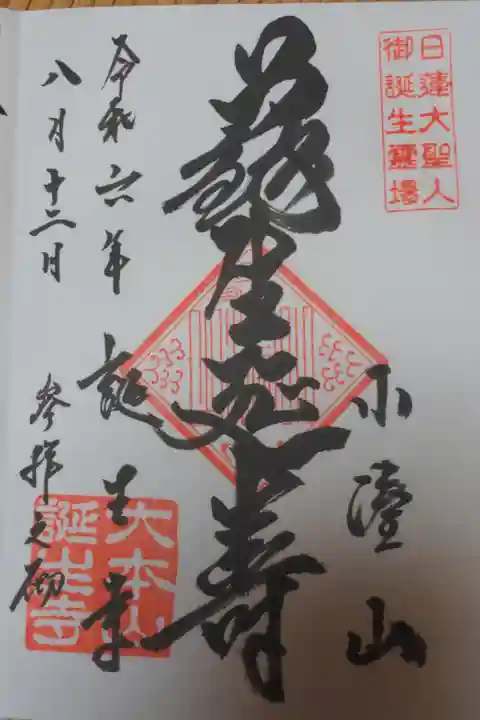 日蓮大聖人
御誕生霊場
小湊山
蘇生延壽
誕生寺
大本山
誕生寺
令和六年
八月十二日 参拝之砌